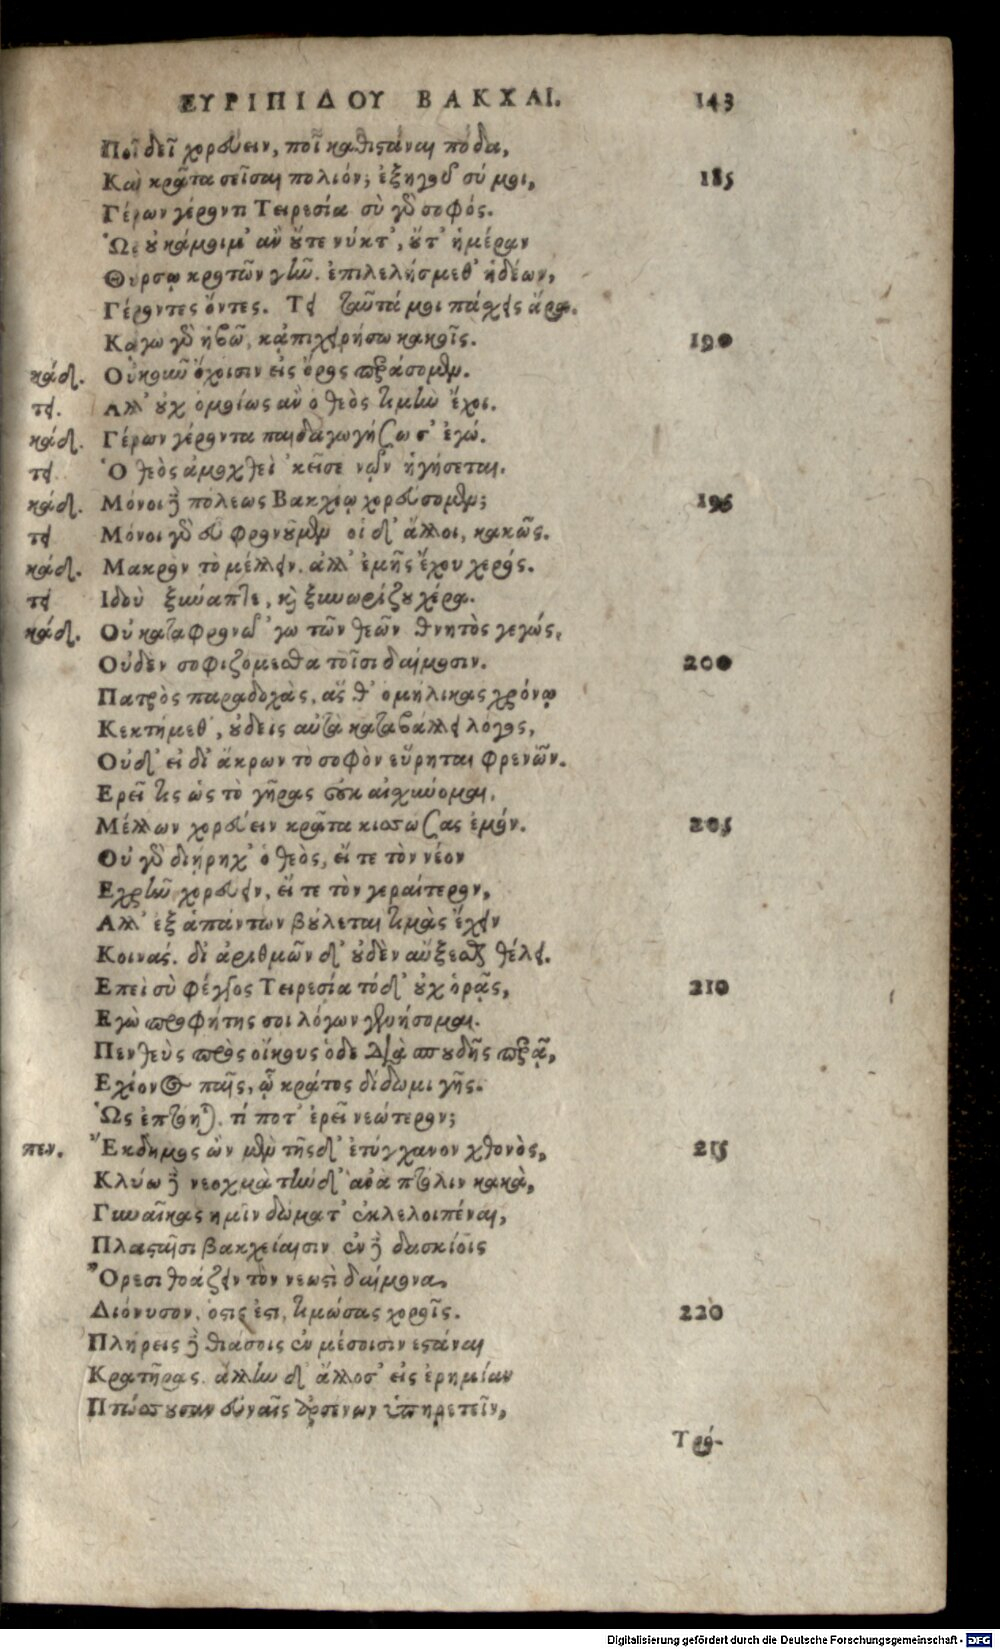 ΕΥΡΙΠΙΔΟΥ ΒΑΚΧΑΙ. 143
Ποῖ δεῖ χορεύειν, ποῖ καθιστάναι πόδα,
Καὶ κρᾶτα σεῖσαι πολιόν; ἐξηγοῦ σύ μοι, 185
Γέρων γέροντι Τειρεσία σὺ γὰρ σοφός.
Ὡς οὐ κάμοιμ' ἂν οὔτε νύκτ', οὔτ' ἡμέραν
Θύρσῳ κροτῶν γῆν. ἐπιλελήσμεθ' ἡδέων,
Γέροντες ὄντες. Τει ταῦτά μοι πάσχεις ἄρα.
Καγω γὰρ ἡβῶ, κἀπιχειρήσω χοροῖς. 190
κάδ. Οὐκοῦν ὄχοισιν εἰς ὄρος περάσομεν.
τει. Αλλ' οὐχ ὁμοίως ἂν ο θεὸς τιμὴν ἔχοι.
κάδ. Γέρων γέροντα παιδαγωγήσω σ' ἐγώ.
τει Ὁ θεὸς ἀμοχθεὶ 'κεῖσε νῷν ἡγήσεται.
κάδ. Μόνοι δὲ πόλεως Βακχίῳ χορεύσομεν; 195
τει Μόνοι γὰρ εὖ φρονοῦμεν οἱ δ' ἄλλοι, κακῶς.
κάδ. Μακρὸν τὸ μέλλειν. ἀλλ' ἐμῆς ἔχου χερός.
τει Ιδοὺ ξυνάπτε, καὶ ξυνωρίζου χέρα.
κάδ. Οὐ καταφρονῶ 'γω τῶν θεῶν θνητὸς γεγώς,
Οὐδὲν σοφιζόμεσθα τοῖσι δαίμοσιν. 200
Πατρὸς παραδοχὰς, ἅς θ' ομήλικας χρόνῳ
Κεκτήμεθ', οὐδεὶς αὐτὰ καταβάλλει λόγος,
Οὐδ' εἰ δι' ἄκρων τὸ σοφὸν εὕρηται φρενῶν.
Ερεῖ τις ὡς τὸ γῆρας οὐκ αἰσχύνομαι,
Μέλλων χορεύειν κρᾶτα κισσώσας ἐμόν. 205
Οὐ γὰρ διῄρηχ' ὁ θεὸς, εἴτε τὸν νέον
Εχρῆν χορεύειν, εἴτε τὸν γεραίτερον,
Αλλ' ἐξ ἁπάντων βούλεται τιμὰς ἔχειν
Κοινάς. δι' ἀριθμῶν δ' οὐδὲν αὔξεσθαι θέλει.
Επεὶ σὺ φέγγος Τειρεσία τόδ' οὐχ ὁρᾷς, 210
Εγὼ προφήτης σοι λόγων γενήσομαι.
Πενθεὺς πρὸς οἴκους ὁδε διὰ σπουδῆς περᾷ,
Εχίονος παῖς, ᾧ κράτος δίδωμι γῆς.
Ὡς ἐπτόηται. τί ποτ' ἐρεῖ νεώτερον;
πεν. Ἔκδημος ὢν μὲν τῆς δ' ἐτύγχανον χθονὸς, 215
Κλύω δὲ νεοχμὰ τήνδ' ἀνὰ πτόλιν κακὰ,
Γυναῖκας ημῖν δώματ' ἐκλελοιπέναι,
Πλασταῖσι βακχείαισιν ἐν δὲ δασκίοις
Ὄρεσι θοάζειν τὸν νεωστὶ δαίμονα
Διόνυσον, ὁστις ἐστι, τιμώσας χοροῖς. 220
Πλήρεις δὲ θιάσοις ἐν μέσοισιν εστάναι
Κρατῆρας ἄλλην δ' ἄλλοσ' εἰς ἐρημίαν
Πτώσσουσαν εὐναῖς ἀρσένων ὑπηρετεῖν,
Τρό-
Digitalisierung gefördert durch die Deutsche Forschungsgemeinschaft - DFG